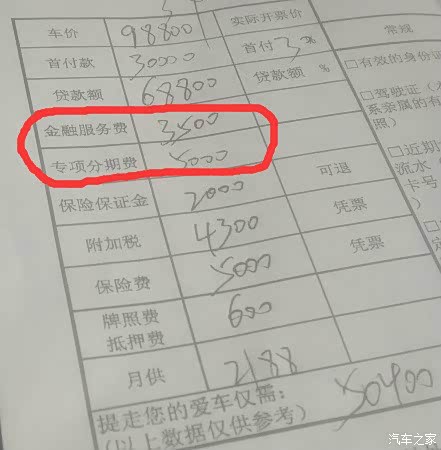 车价 98800 实际开票价
首付款 30000 首付 3 %
贷款额 68800 贷款额 %
金融服务费 3500
专项分期费 5000
保险保证金 2000 可退
附加税 4300 凭票
保险费 5000 凭票
牌照费 600
抵押费
月供 2188
提走您的爱车仅需: 50400
(以上数据仅供参考)
常规
□有效的身份证
□驾驶证(
系亲属的有
照)
□近期
流水
卡号
)
汽车之家